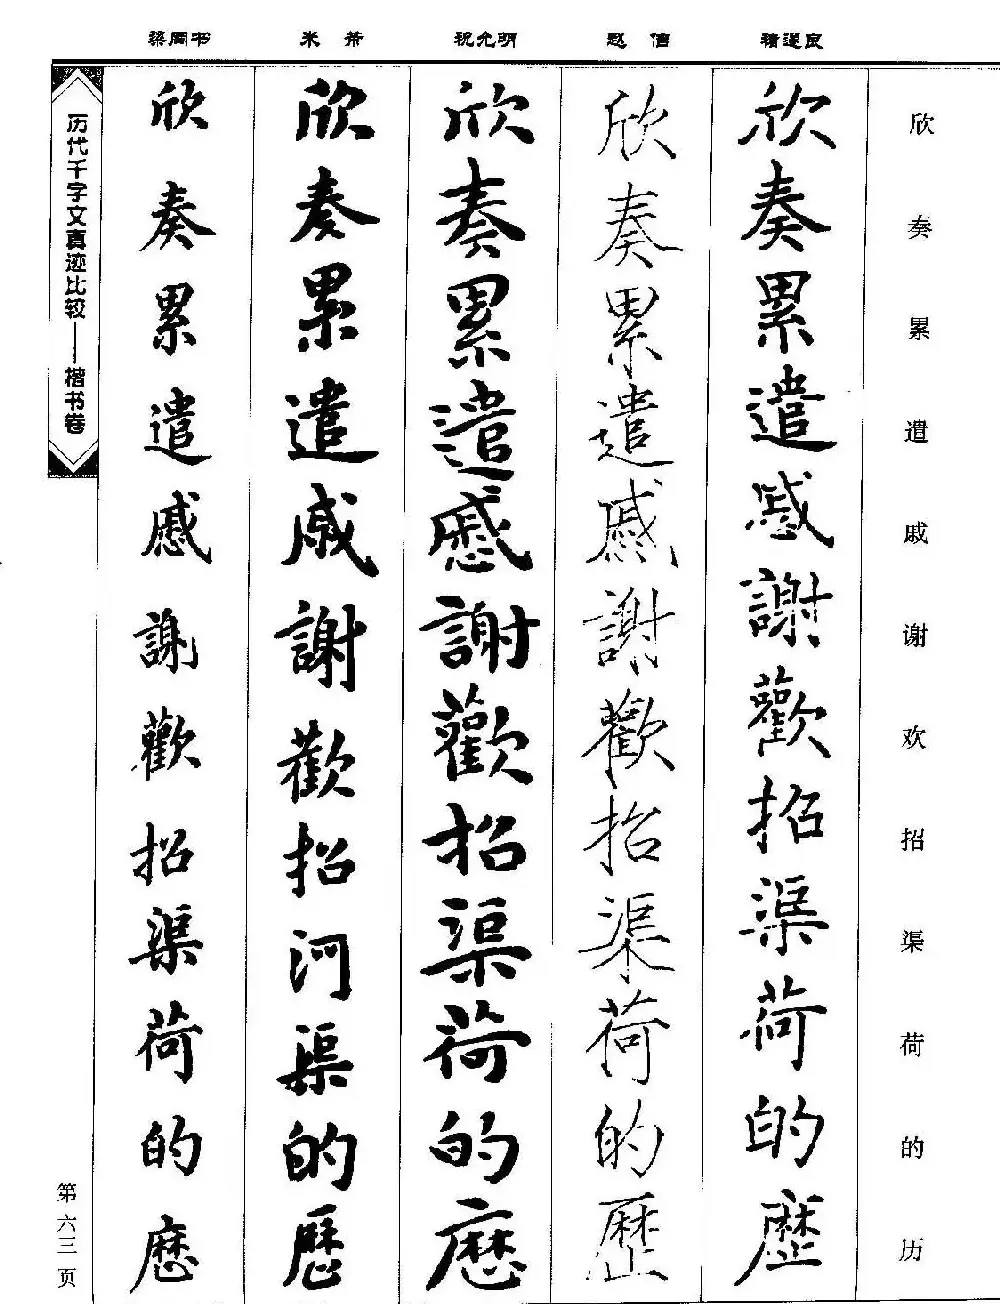 梁同书 米芾 祝允明 赵佶 褚遂良
欣奏累遣戚谢欢招渠荷的历
欣奏累遣慼謝歡招渠荷的歷
欣奏累遣慼謝歡招渠荷的歷
欣奏累遣慼謝歡招渠荷的歷
欣奏累遣戚謝歡招河渠的歷
欣奏累遣慼謝歡招渠荷的歷
历代千字文真迹比较——楷书卷
第六三页